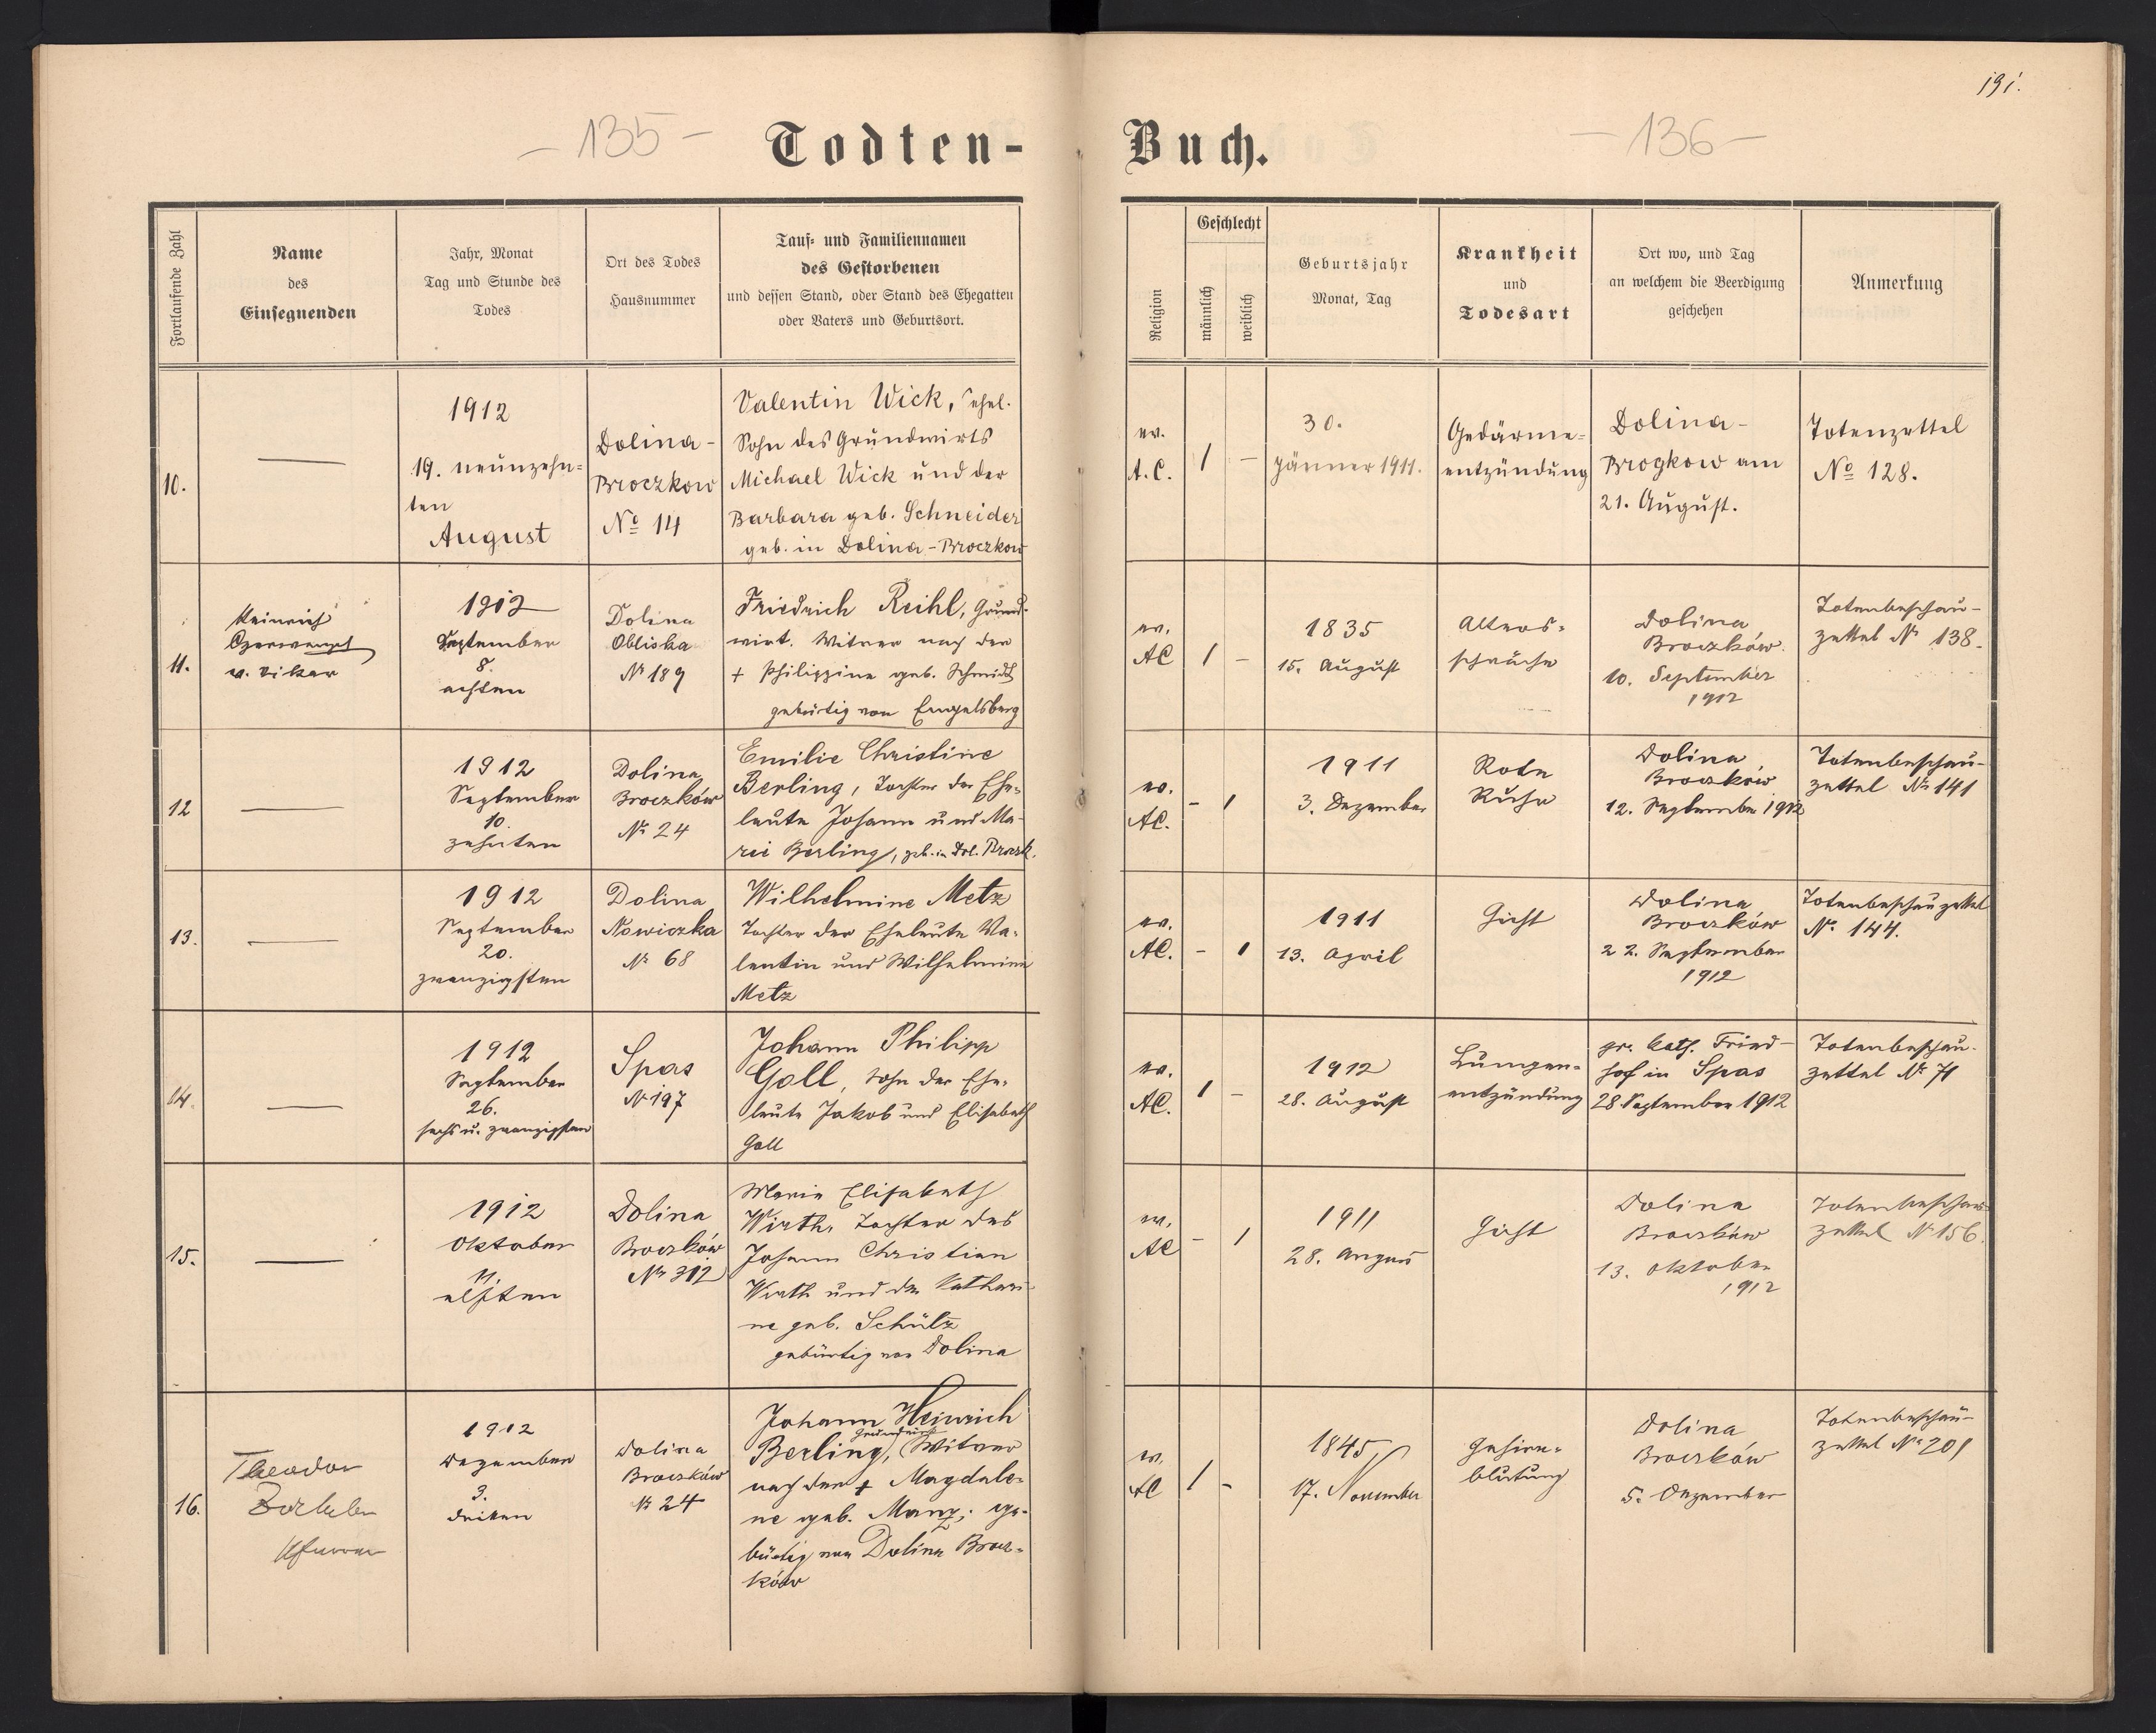 191.
- 135 -
Todten-
Buch.
- 136 -
Fortlaufende Zahl
Name
des
Einsegnenden
Jahr, Monat
Tag und Stunde des
Todes
Ort des Todes
Hausnummer
Tauf- und Familiennamen
des Gestorbenen
und dessen Stand, oder Stand des Ehegatten
oder Vaters und Geburtsort.
Religion
Geschlecht
männlich
weiblich
Geburtsjahr
Monat, Tag
Krankheit
und
Todesart
Ort wo, und Tag
an welchem die Beerdigung
geschehen
Anmerkung
10.
—
1912
19. neunzehn-
ten
August
Dolina-
Broczkow
No 14
Valentin Wick, ehel.
Sohn des Grundwirts
Michael Wick und der
Barbara geb. Schneider
geb. in Dolina-Broczkow
ev.
A.C.
1
-
30.
Jänner 1911.
Gedärme-
entzündung
Dolina-
Brogkow am
21. August.
Totenzettel
No 128.
11.
Heinrich
v. Vikar
1912
September
8.
achten
Dolina
Obliska
No 189
Friedrich Reihl, Grund-
wirt. Witwer nach der
+ Philippine geb. Schmidt
gebürtig von Engelsberg
ev.
AC
1
-
1835
15. August
Alters-
schwäche
Dolina
Broczków.
10. September
1912
Totenbeschau-
zettel No 138.
12
—
1912
September
10.
zehnten
Dolina
Broczków
No 24
Emilie Christine
Berling, Tochter der Ehe-
leute Johann und Ma-
rie Berling, geb. in Dol. Broczk.
ev.
AC.
-
1
1911
3. Dezember
Rote
Ruhr
Dolina
Broczków
12. September 1912
Totenbeschau-
zettel No 141
13.
—
1912
September
20.
zwanzigsten
Dolina
Nowiczka
No 68
Wilhelmine Metz
Tochter der Eheleute Va-
lentin und Wilhelmine
Metz
ev.
AC.
-
1
1911
13. April
Gicht
Dolina
Broczków
22. September
1912
Totenbeschauzettel
No. 144.
14.
—
1912
September
26.
sechs u. zwanzigsten
Spas
No 197
Johann Philipp
Goll, Sohn der Ehe-
leute Jakob und Elisabeth
Goll
ev.
AC.
1
-
1912
28. August
Lungen-
entzündung
gr. kath. Fried-
hof in Spas
28. September 1912
Totenbeschau-
zettel No 71
15.
—
1912
Oktober
11.
elften
Dolina
Broczków
No 312
Marie Elisabeth
Wirth, Tochter des
Johann Christian
Wirth und der Kathari-
ne geb. Schütz
gebürtig von Dolina
ev.
AC
-
1
1911
28. August
Gicht
Dolina
Broczków
13. Oktober
1912
Totenbeschau-
zettel No 156.
16.
Theodor
Zöckler
Pfarrer
1912
Dezember
3.
dritten
Dolina
Broczków
No 24
Johann Heinrich
Grundwirt
Berling, Witwer
nach der + Magdale-
ne geb. Manz; ge-
bürtig von Dolina Brocz-
ków
ev.
AC
1
-
1845
17. November
Gehirn-
blutung
Dolina
Broczków
5. Dezember
Totenbeschau-
zettel No 201